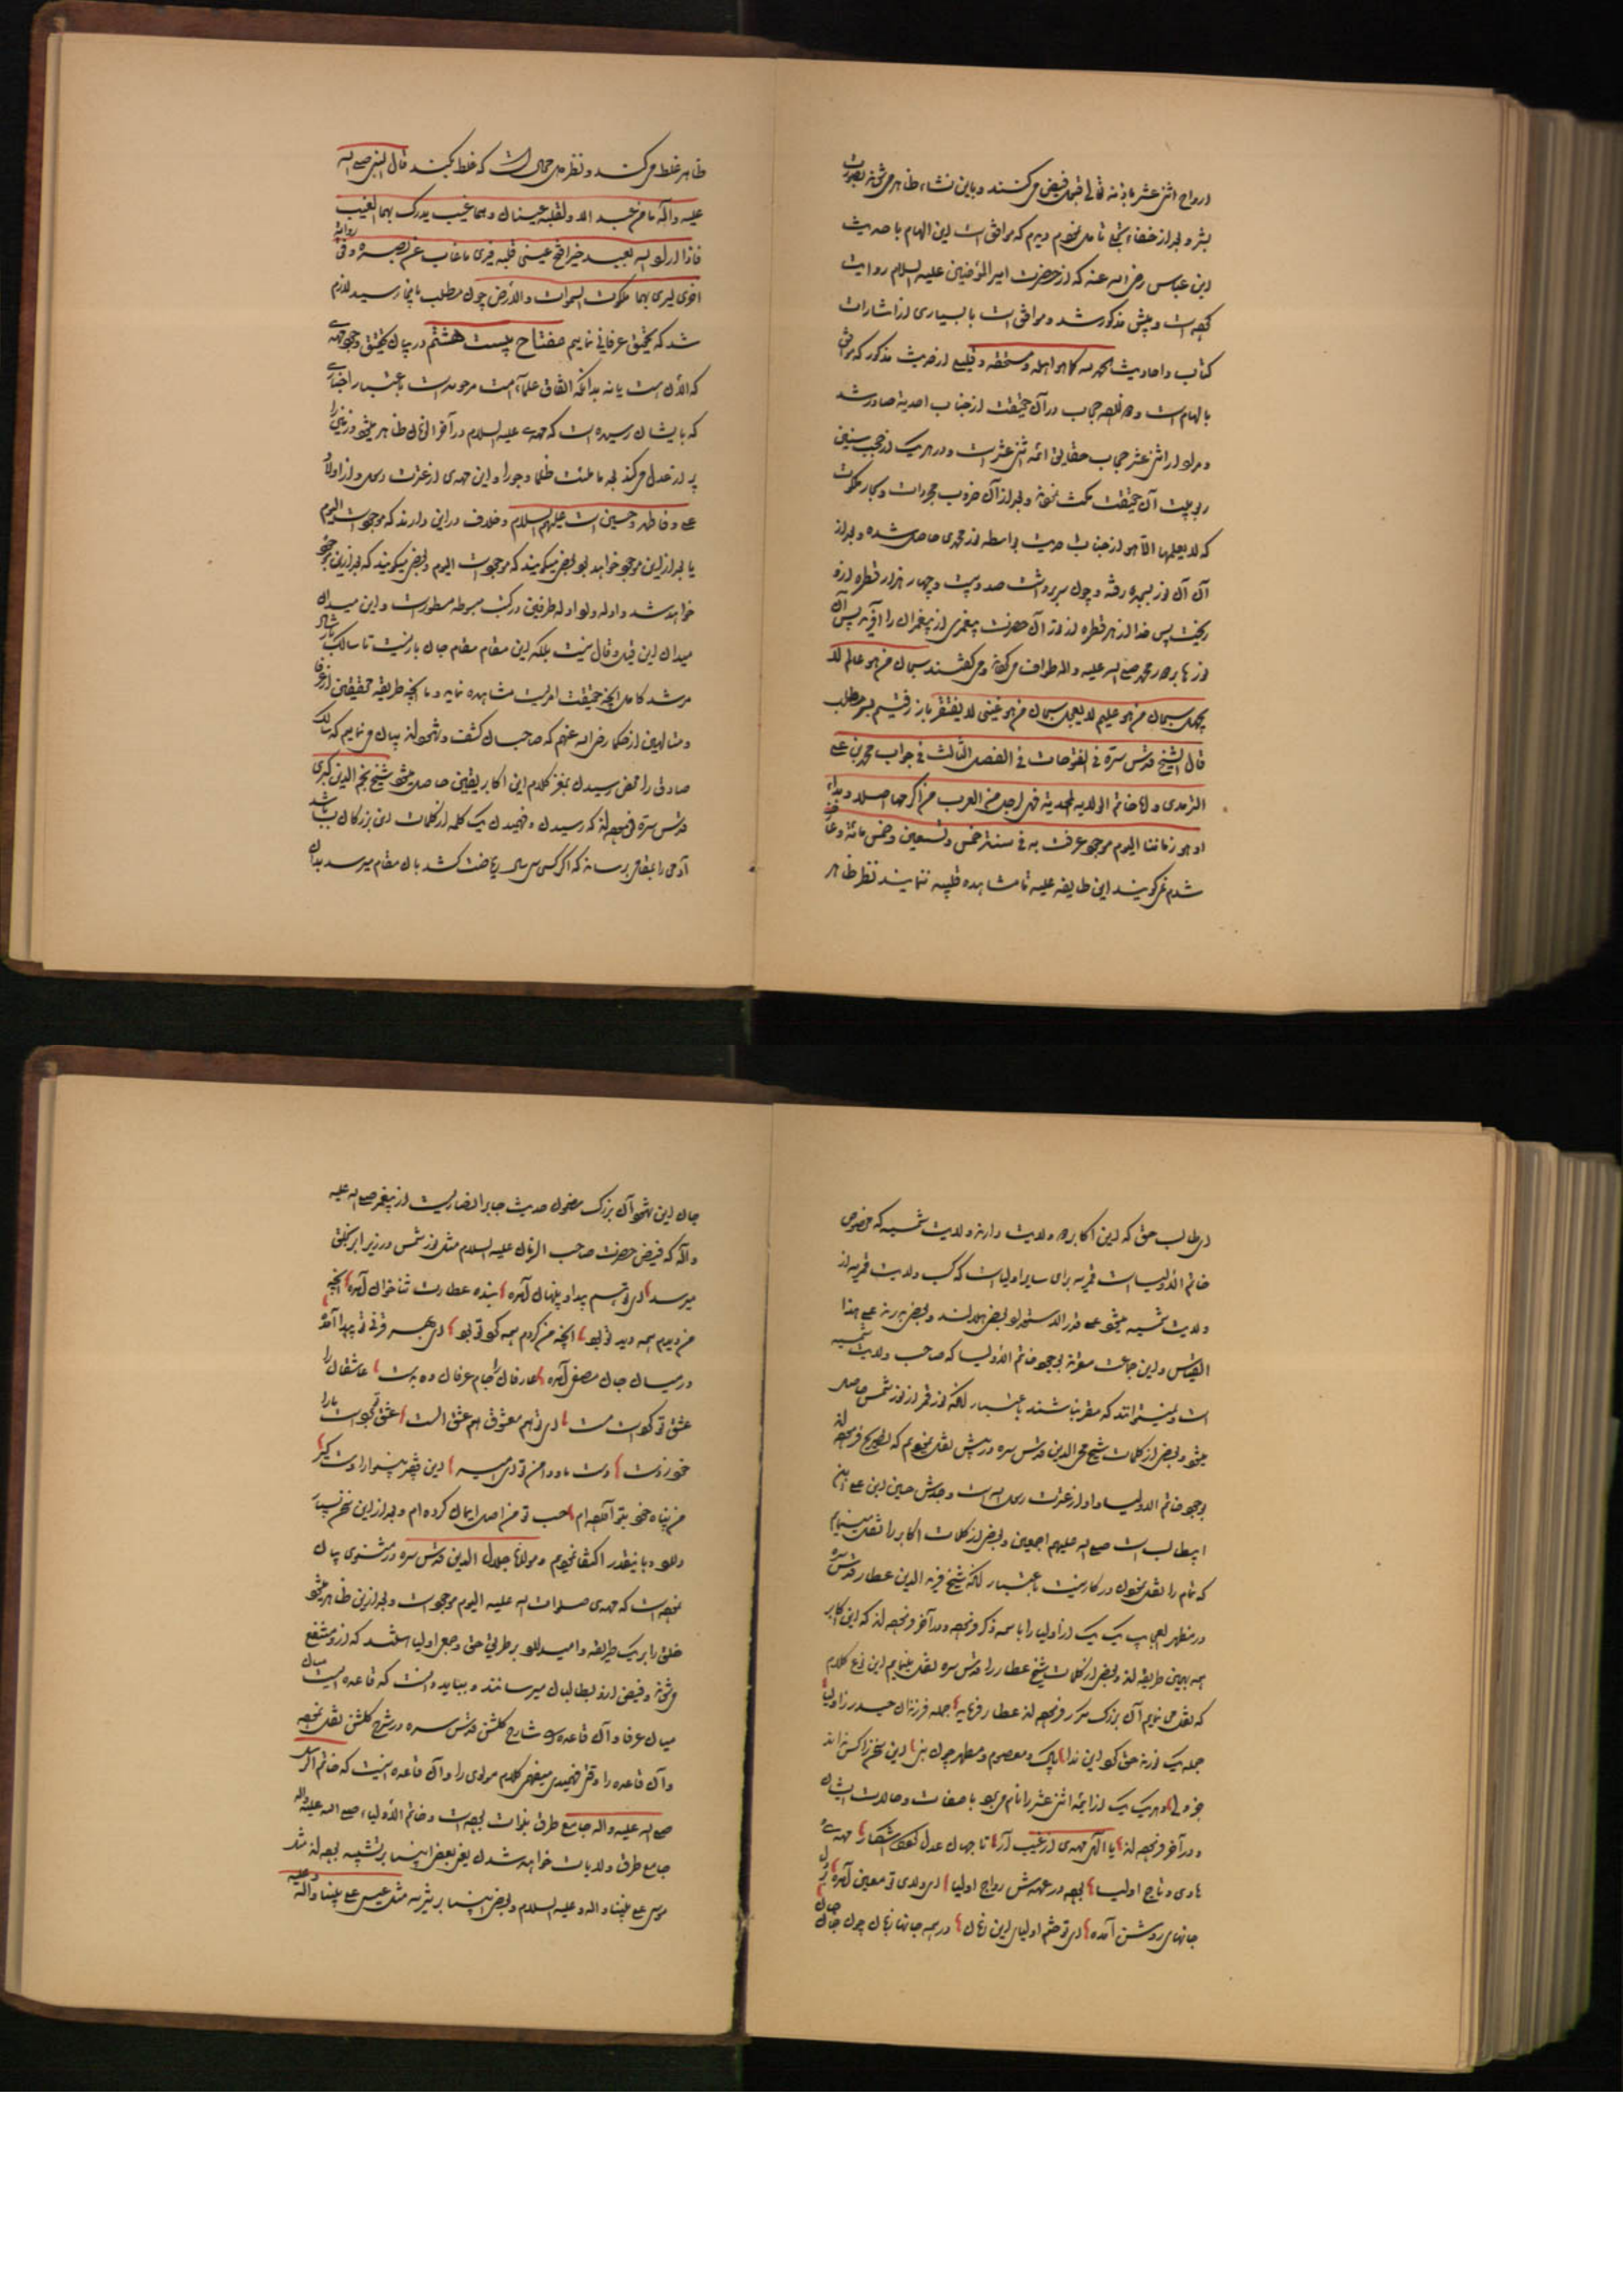 ارواح اثنی عشر باذنه تعالی قبول فیض می کنند و باین نشاء ظاهر می شوند بصورت
بشر و بعد از خفاء شیخ تامل نمودم دیدم که موافق است این الهام با حدیث
ابن عباس رضی اله عنه که از حضرت امیر المؤمنین علیه السلام روایت
کرده است و پیش مذکور شد و موافق است با بسیاری از اشارات
کتاب و احادیث الحمد لله کما هو اهله و مستحقه و قلیلی از حدیث مذکور که موافق
بالهام است دوازده حجاب در آن حقیقت از جناب احدیة صادر شد
و مراد از اثنی عشر حجاب حقایق ائمه اثنی عشر است و در هر یک از حجب سنین
ربوبیت آن حقیقت مکث نموده و بعد از آن ضروب مجردات و بحار ملکوت
که لا یعلمها الا هو از جناب احدیت بواسطه نور محمدی حاصل شده و بعد از
آن آن نور بسجده رفته و چون سر برداشت صد و بیست و چهار هزار قطره ازو
ریخت پس خدا از هر قطره از نور آن حضرت پیغمبری از پیغمبران را آفرید پس آن
نورها بر دور محمد صلی اله علیه و اله طواف می کردند و می گفتند سبحان من هو عالم لا
یجهل سبحان من هو علیم لا یعجل سبحان من هو غنی لا یفتقر باز رفتیم بسر مطلب
قال الشیخ قدس سره فی الفتوحات فی الفصل الثالث فی جواب محمد بن علی
الترمذی و اما خاتم الولایه المحمدیة فهی لرجل من العرب من اکرمها اصلا و بداء
و هو زماننا الیوم موجود عرفت به فی سنة خمس و تسعین و خمس مائة و عارف
شدم می گویند این طایفه علیه تا مشاهده قلبیه ننمایند نظر ظاهر
ظاهر غلط می کند و نظر دل محال است که غلط کند قال النبی صلی اله
علیه و آله ما من عبد الا و لقلبه عینان و هما غیب یدرک بهما الغیب
فاذا اراد اله بعبد خیرا فتح عینی قلبه فیری ما غاب عن بصره و فی روایة
اخری لیری بهما ملکوت السموات و الأرض چون مطلب باینجا رسید لازم
شد که تحقیق عرفانی نماییم مفتاح بیست هشتم در بیان تحقیق وجود مهدی
که الآن هست یا نه بدانکه اتفاق علماء امت مرحومه است باعتبار اخباری
که بایشان رسیده است که مهدی علیه السلام در آخر الزمان ظاهر میشود و زمین را
پر از عدل می کند بعد ما ملئت ظلما و جورا و این مهدی از عترت رسول و از اولاد
علی و فاطمه و حسین است علیهم السلام و خلاف در این دارند که موجود است الیوم
یا بعد از این موجود خواهد بود بعضی میگویند که موجود است الیوم و بعضی میگویند که بعد ازین موجود
خواهد شد و ادله و لوا دله طرفین در کتب مبسوطه مسطور است و این میدان
میدان این قیل و قال نیست بلکه این مقام مقام جان بازیست تا سالک بارشاد
مرشد کامل آنچه حقیقت امر است مشاهده نماید و ما آنچه طریقه محققین از عرفا
و متالهین از حکما رضی اله عنهم که صاحبان کشف و شهود اند بیان می نماییم که سالک
صادق را محض رسیدن بمغز کلام این اکابر یقین حاصل میشود شیخ نجم الدین کبری
قدس سره فرموده اند که رسیدن و فهمیدن یک کلمه از کلمات این بزرگان باشد
آدمی را بمقامی رساند که اگر کسی سی سال ریاضت کشد بآن مقام میرسد بدان
ای طالب حق که این اکابر دو ولایت دارند ولایت شمسیه که مخصوص
خاتم الاولیاست و قمریه برای سایر اولیاست که کسب ولایت قمریه از
ولایت شمسیه میشود علی قدر الاستعداد و بعضی هلالند و بعضی بدرند علی هذا
القیاس و این جماعت مقرند بوجود خاتم الاولیا که صاحب ولایت شمسیه
است و نمیتوانند که مقر نباشند باعتبار آنکه نور قمر از نور شمس حاصل
میشود و بعضی از کلمات شیخ محی الدین قدس سره در پیش نقل نمودیم که تصریح فرموده اند
بوجود خاتم الاولیاء و او از عترت رسول اله است و جدش حسین ابن علی ابن
ابیطالب است صلی اله علیهم اجمعین و بعضی از کلمات اکابر را نقل مینماییم
که تمام را نقل نمودن در کار نیست باعتبار آنکه شیخ فرید الدین عطار قدس سره
در مظهر العجایب یک یک از اولیا را باسمه ذکر فرموده و در آخر فرموده اند که این اکابر
همه بهمین طریقه اند و بعضی از کلمات شیخ عطار را قدس سره نقل مینماییم این نوع کلام
که نقل می نماییم آن بزرگ مکرر فرموده اند عطار فرماید جمله فرزندان حیدر ز اولیا
جمله یک نورند حق گوید این ندا پاک و معصوم و مطهر چون نبی این سخن را کس نداند
جز ولی و هر یک یک از ائمه اثنی عشر را نام می برد با صفات و حالات ایشان
و در آخر فرموده اند یا الهی مهدی از غیب آر تا جهان عدل گردد آشکار مهدی
هادی و تاج اولیا بوده در عهدش رواج اولیا ای ولای تو معین آمده
جانهای روشن آمده ای تو ختم اولیای این زمان در همه جانها نهان چون جان جان
جان این شعر آن بزرگ مضمون حدیث جابر انصاریست از پیغمبر صلی اله علیه
و آله که فیض حضرت صاحب الزمان علیه السلام مثل نور شمس در زیر ابر بخلق
میرسد ای تو هم پیدا و پنهان آمده بنده عطارت ثنا خوان آمده آنچه
من دیدم همه دید تو بود آنچه من کردم همه گوی تو بود ای بهر قرنی تو پیدا آمده
در میان جان مصفی آمده عارفان را جام عرفان ده بدست عاشقان را
عشق تو کرده است مست ای تو هم معشوق هم عشق الست عشق تو خود است
خود ز دست دست ما و دامن تو ای امیر این فقیر بینوا را دست گیر
من پناه خود بتو آورده ام حب تو من اصل ایمان کرده ام و بعد از این سخن بسیار
دارد و باینقدر اکتفا نمودیم و مولانا جلال الدین قدس سره در مثنوی بیان
نموده است که مهدی صلوات اله علیه الیوم موجود است و بعد ازین ظاهر میشود
خلق را بر یک طریقه وا میدارد بر طریق حق و جمع اولیا هستند که ازو منتفع
می شوند و فیض ازو بطالبان میرسانند و بباید دانست که قاعده ایست میان
میان عرفا و آن قاعده را شارح گلشن قدس سره در شرح گلشن نقل نموده
و آن قاعده را وقتی فهمیدی میفهمی کلام مولوی را و آن قاعده اینست که خاتم الرسل
صلی اله علیه و اله جامع طرق نبوات بوده است و خاتم الأولیاء صلی اله علیه و اله
جامع طرق ولایات خواهد شدن یعنی بعضی انبیا بر تشبیه بوده اند مثل
موسی علی نبینا و اله و علیه السلام و بعضی انبیا بر تنزیه مثل عیسی علی نبینا و آله و علیه